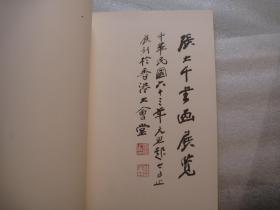 張大千書画展覧
中華民國六十三年元旦起七日止
展列於香港大會堂